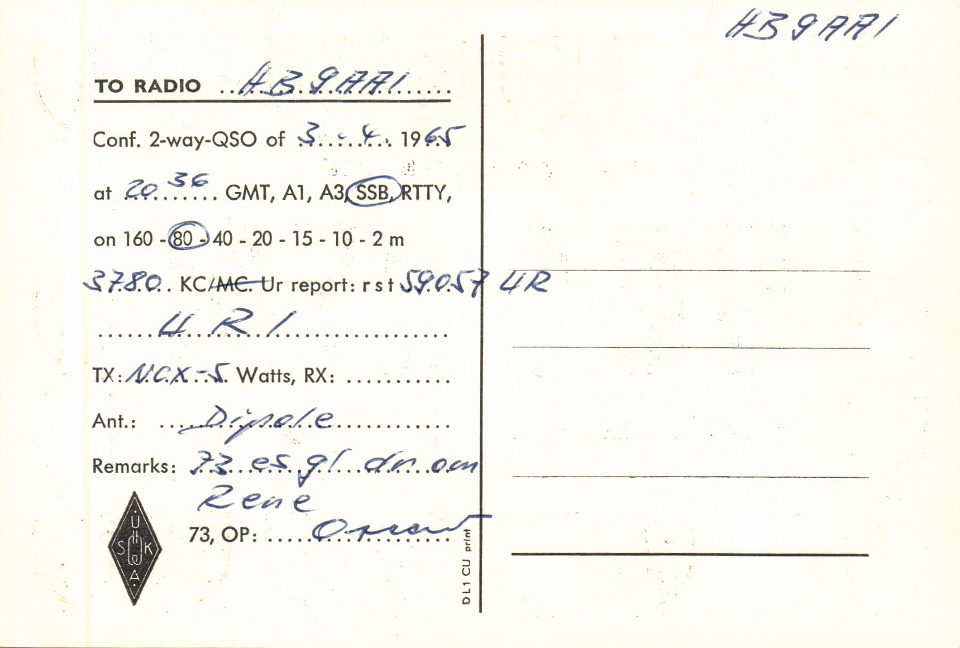 HB9AAI
TO RADIO ..HB9AAI......
Conf. 2-way-QSO of 3.-.4.. 1965
at 20 36 GMT, A1, A3, SSB, RTTY,
on 160 - 80 - 40 - 20 - 15 - 10 - 2 m
3780.. KC/MC Ur report: rst 59057 4R
4R1
TX: NCX-5 Watts, RX: ...........
Ant.: Dipole
Remarks: 73 es gl dr om
Rene
73, OP:
USKA
DL1CU print